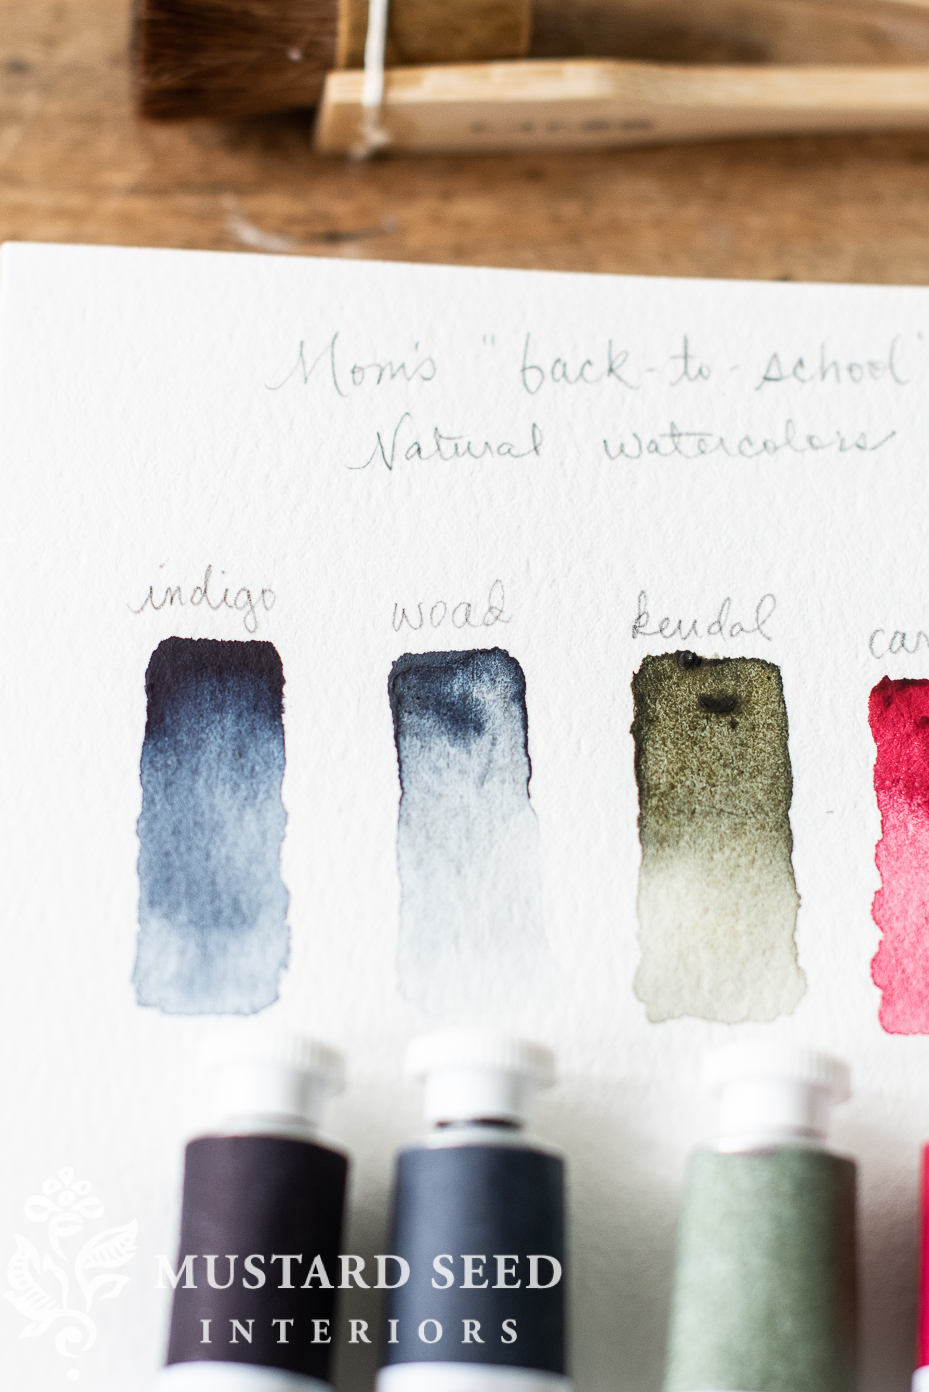 Mom's "back-to-school"
Natural watercolors
indigo woad kendal car
MUSTARD SEED
INTERIORS